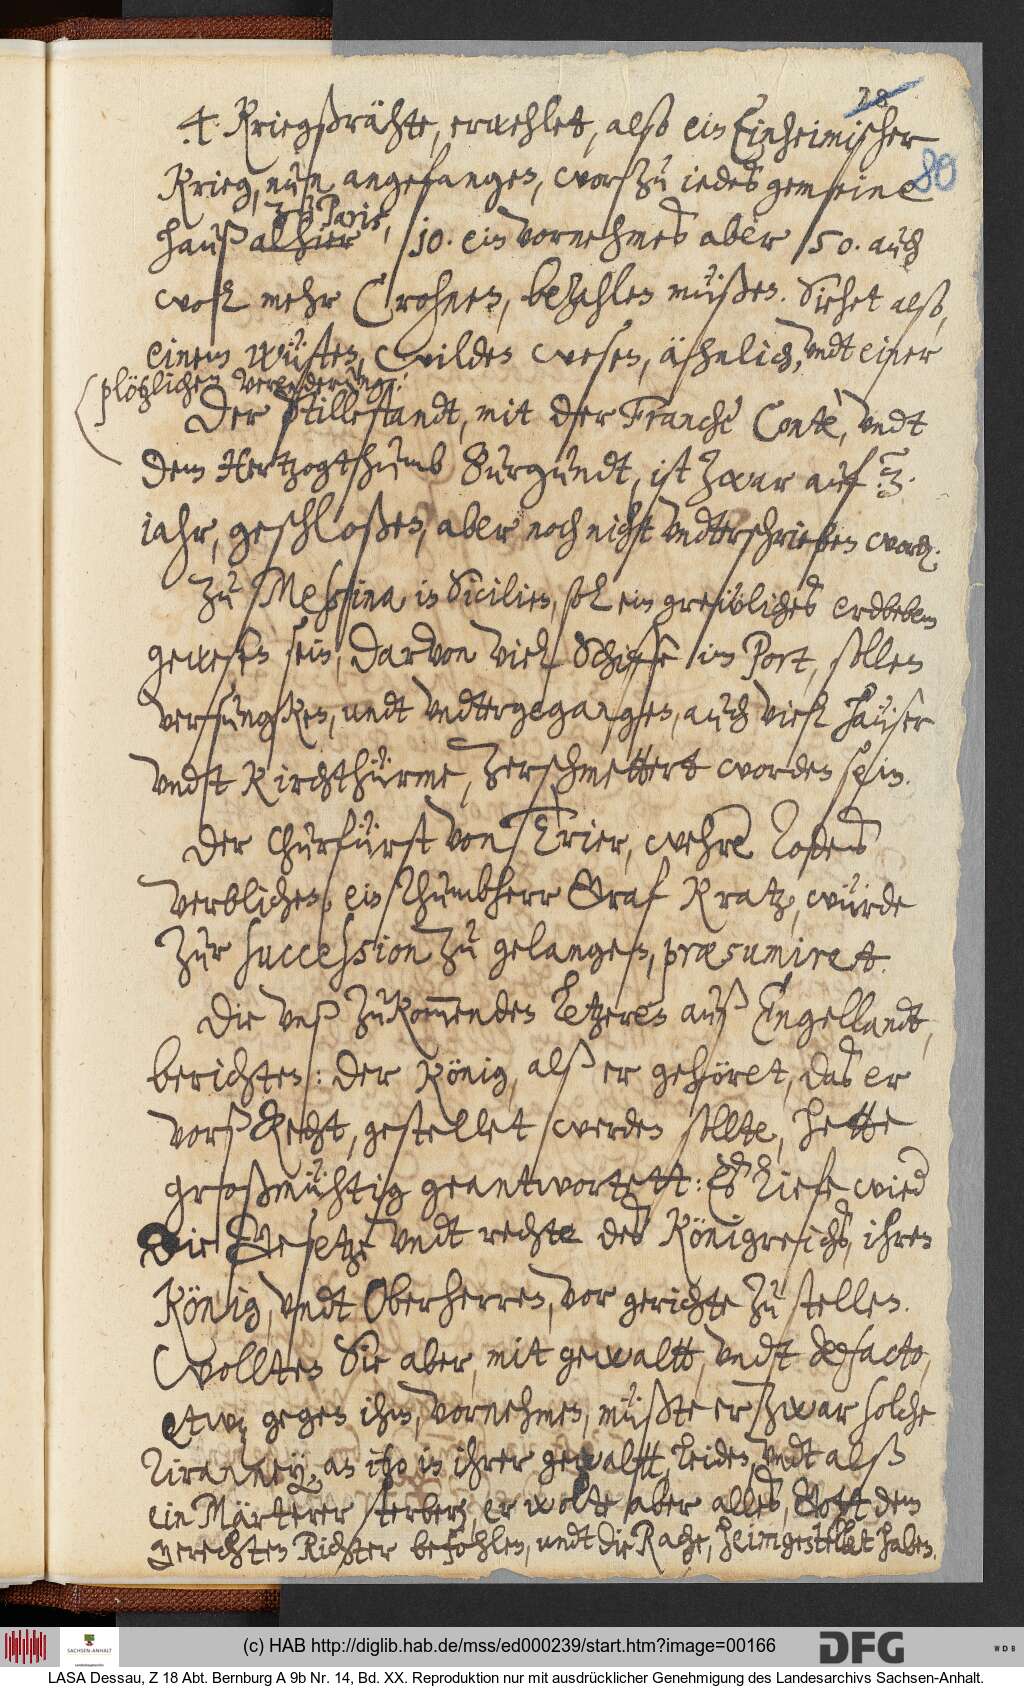 28
80
4. Kriegßrähte, erwehlet, alß ein Einheimischer
Krieg, nun angefangen, worzu iedes gemeine
zu Paris,
hauß alhier 10. ein vornehmes aber 50. auch
wol mehr Crohnen, bezahlen müßen. Siehet also,
einem wüsten, wilden wesen, ähnlich, undt einer
(plötzlichen verenderung.
Der Stillestandt, mit der Franche Conte, undt
dem Hertzogthumb Burgundt, ist zwar auf 3.
iahr, geschloßen, aber noch nicht undterschrieben word.
Zu Messina in Sicilien, sol ein grewliches erdbeben
gewesen sein, darvon viel Schiffe im Port, sollen
versungken, undt undtergegangen, auch viel häuser
undt Kirchthürme, zerschmettert worden sein.
Der Churfürst von Trier, wehre Todes
verblichen, ein Thumbherr Graf Kratz, würde
zur succession zu gelangen, præsumiret.
Die unß zukommenden letzeren auß Engellandt,
berichten: der König, alß er gehöret, das er
vorß Recht, gestellet werden sollte, hette
großmühtig geantwortett: Es liefe wied
die Gesetze undt rechte des Königreichs, ihren
König, undt Oberherren, vor gerichte zu stellen.
Wollten Sie aber, mit gewaltt, undt de facto,
etw gegen ihm, vornehmen, müßte er zwar solche
Tiranney, an itzo in ihrer gewaltt, leiden, undt alß
ein Märterer sterben, er wolte aber alles, Gott dem
gerechten Richter befohlen, undt die Rache, heimgestellet haben.
(c) HAB http://diglib.hab.de/mss/ed000239/start.htm?image=00166
SACHSEN-ANHALT
DFG
WDB
LASA Dessau, Z 18 Abt. Bernburg A 9b Nr. 14, Bd. XX. Reproduktion nur mit ausdrücklicher Genehmigung des Landesarchivs Sachsen-Anhalt.